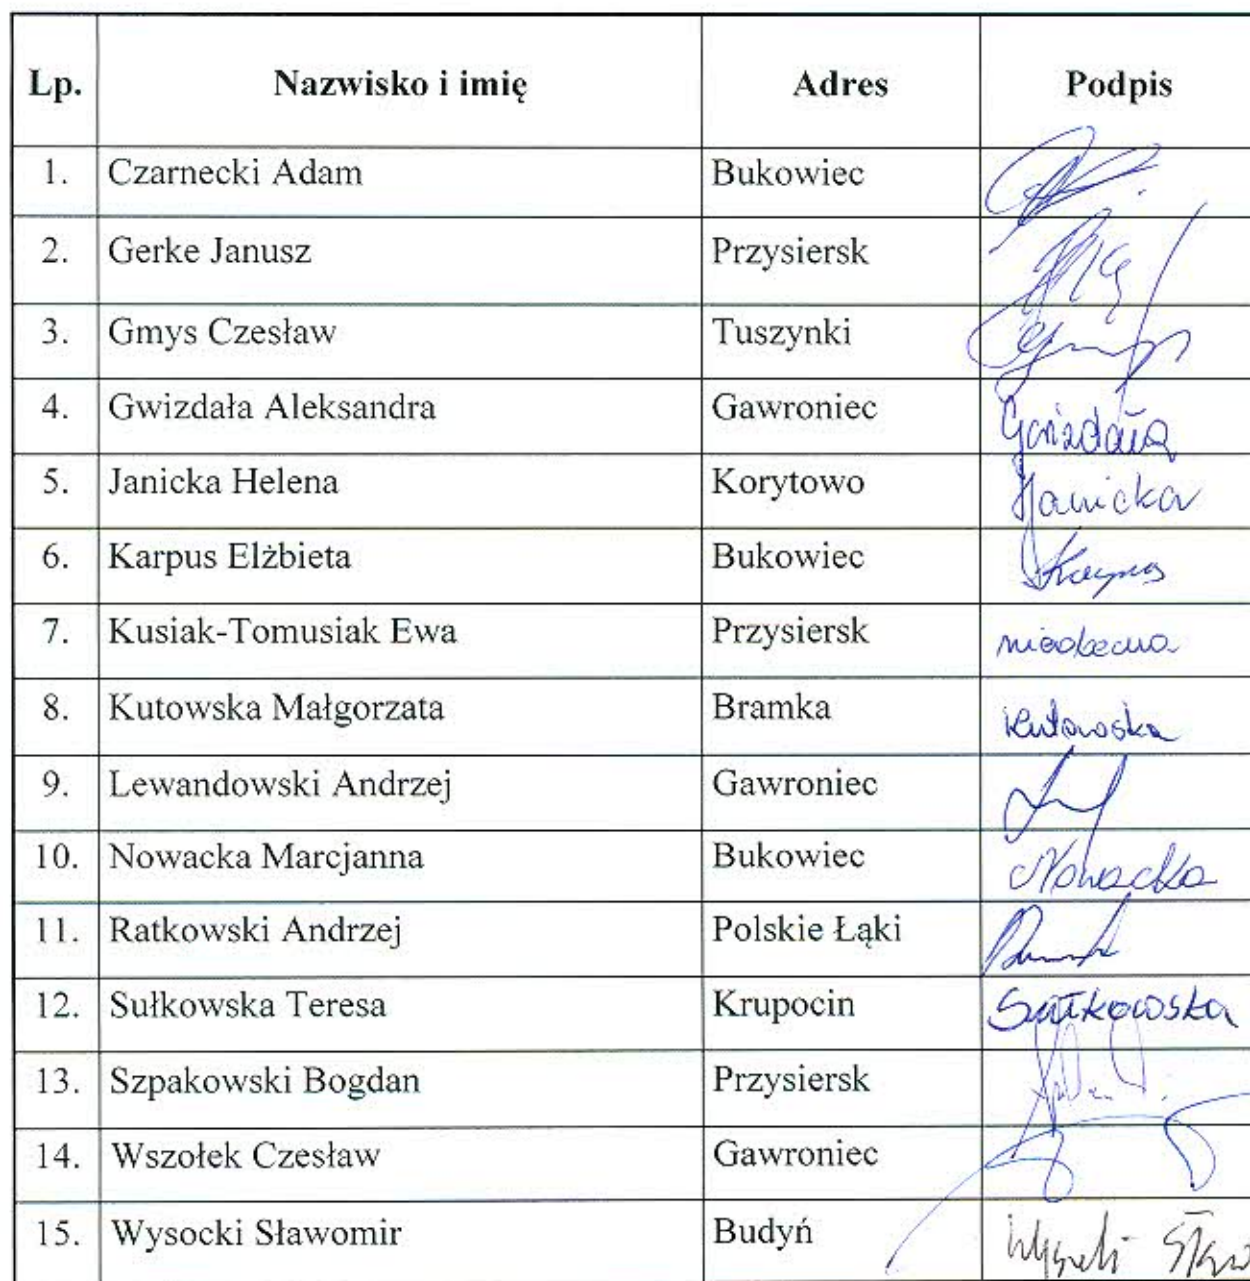 Lp. Nazwisko i imię Adres Podpis
1. Czarnecki Adam Bukowiec
2. Gerke Janusz Przysiersk
3. Gmys Czesław Tuszynki
4. Gwizdała Aleksandra Gawroniec Gwizdała
5. Janicka Helena Korytowo Janicka
6. Karpus Elżbieta Bukowiec Karpus
7. Kusiak-Tomusiak Ewa Przysiersk nieobecna
8. Kutowska Małgorzata Bramka Kutowska
9. Lewandowski Andrzej Gawroniec
10. Nowacka Marcjanna Bukowiec Nowacka
11. Ratkowski Andrzej Polskie Łąki
12. Sułkowska Teresa Krupocin Sułkowska
13. Szpakowski Bogdan Przysiersk
14. Wszołek Czesław Gawroniec
15. Wysocki Sławomir Budyń